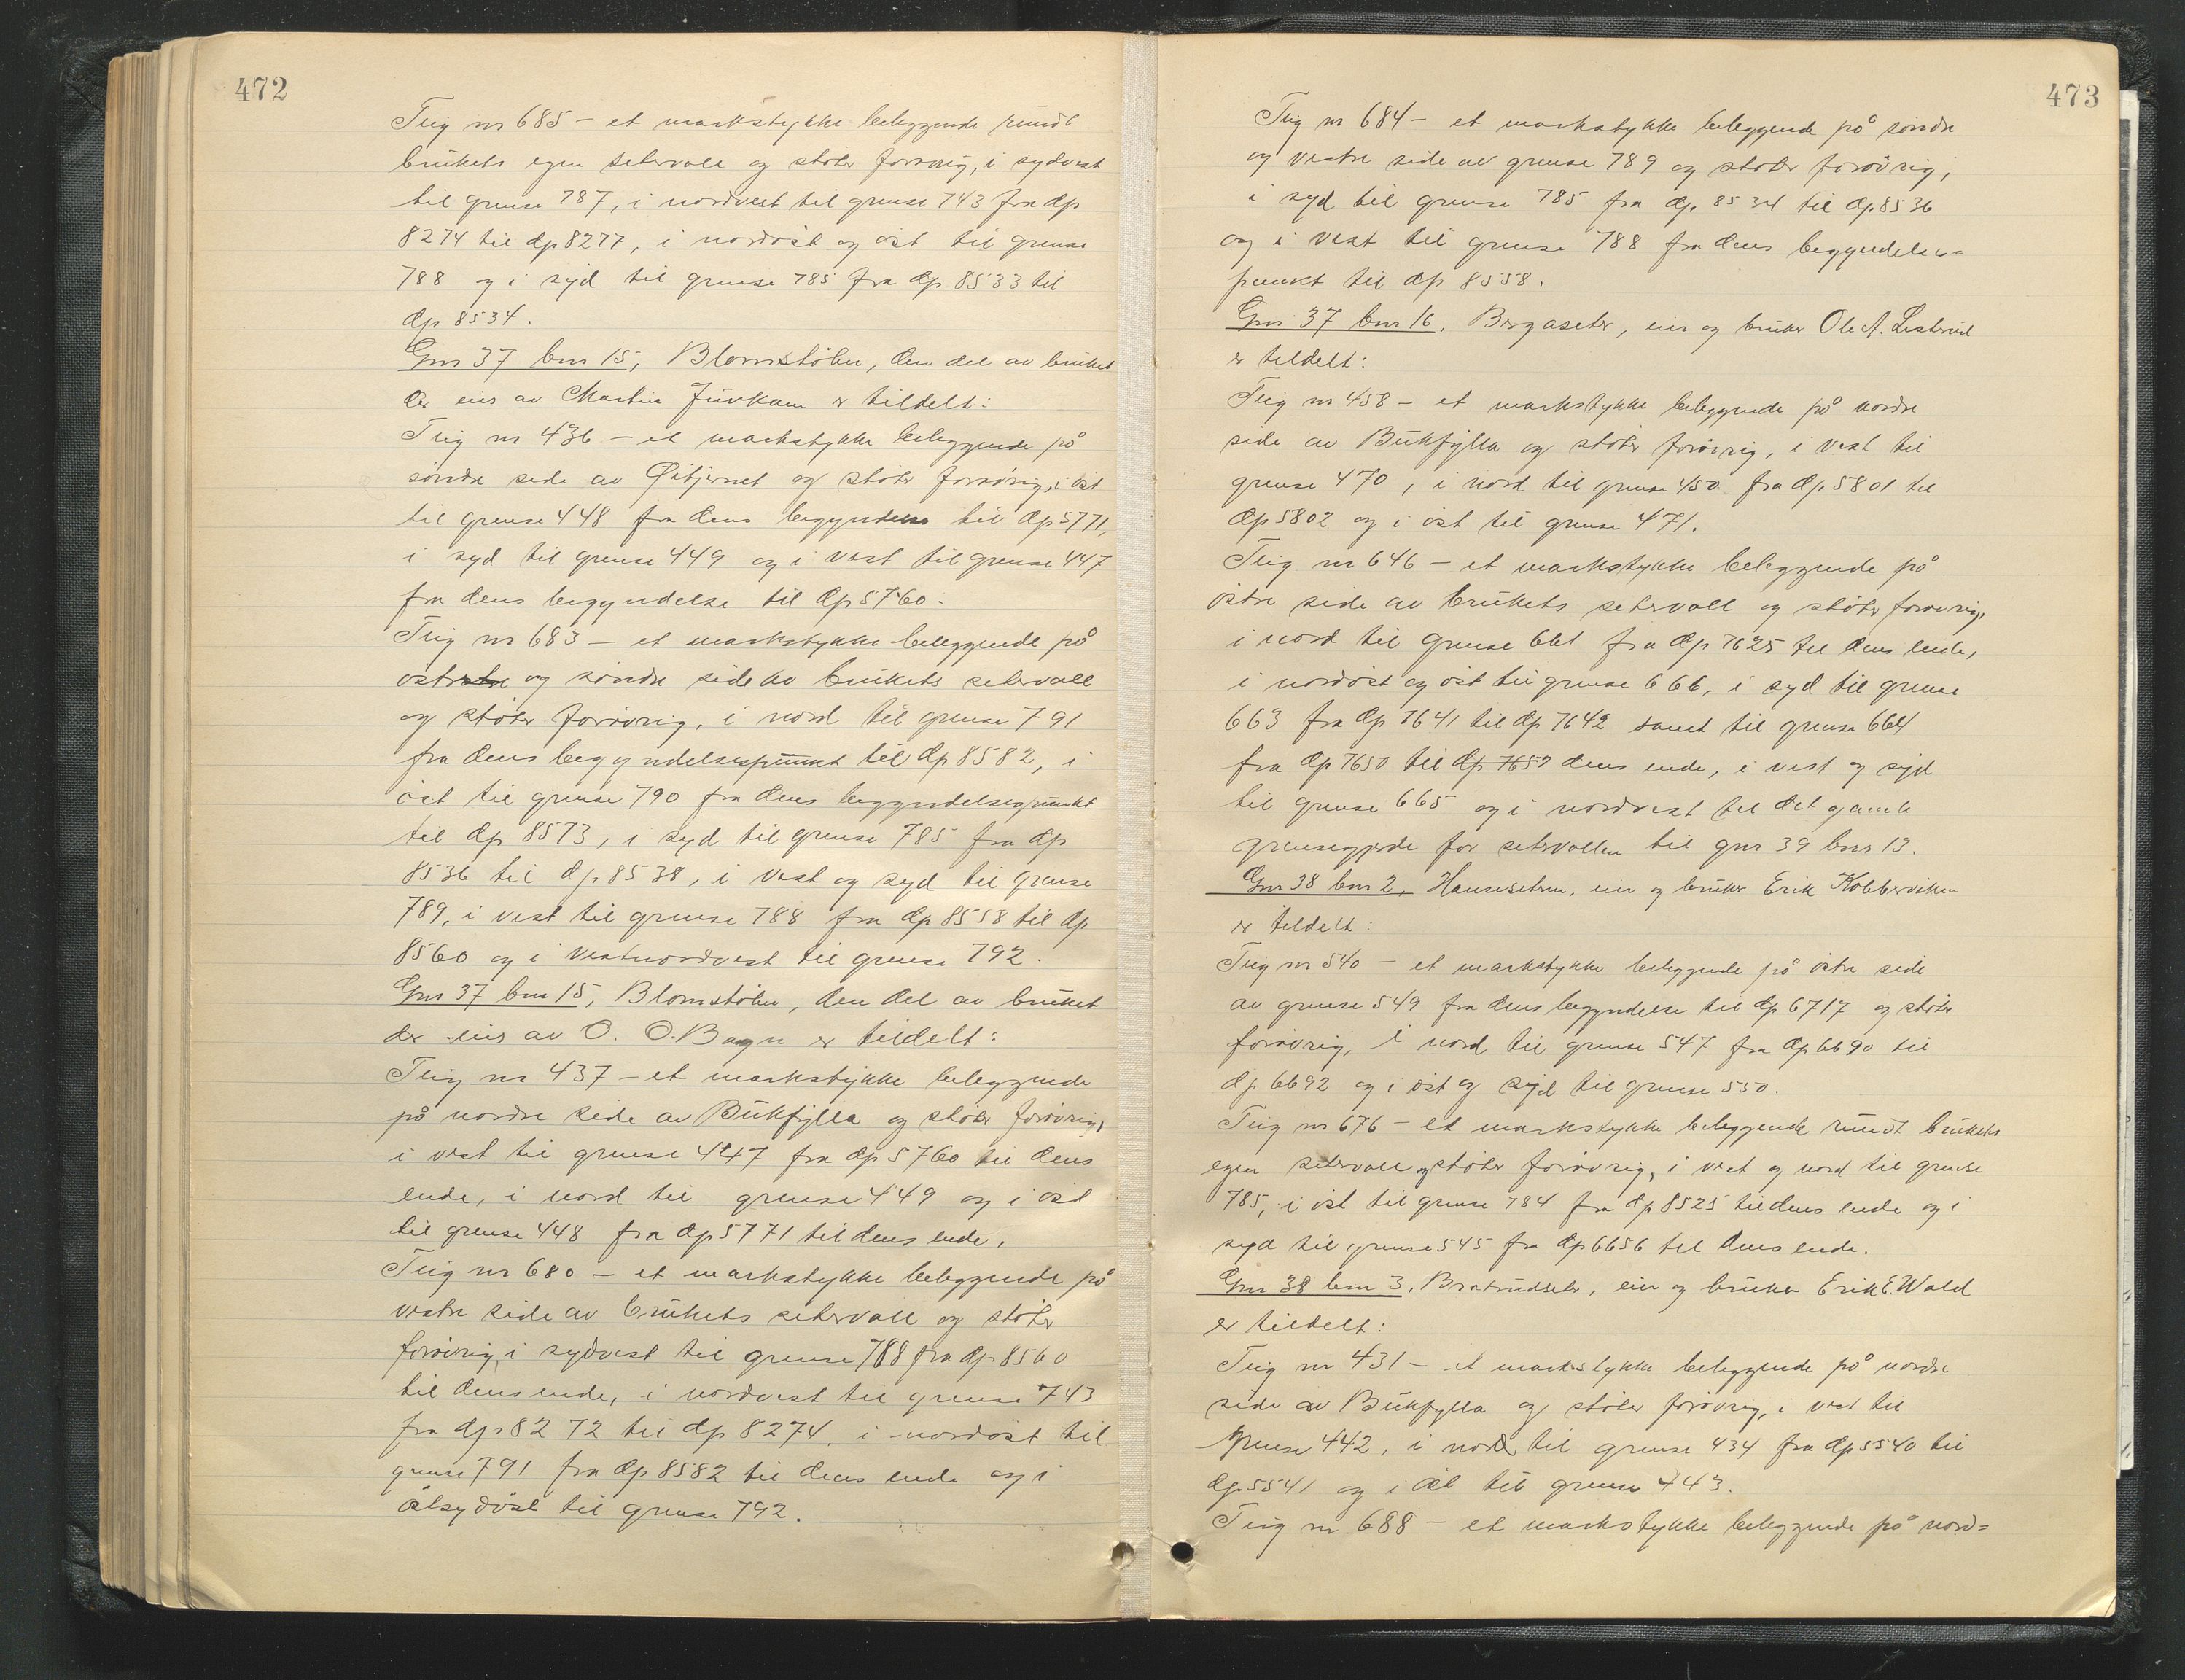 472
Teig nr 685 – et markstykke beliggende rundt
brukets egen setervoll og støter forøvrig, i sydvest
til grense 787, i nordvest til grense 743 fra dp
8274 til dp 8277, i nordøst og øst til grense
788 og i syd til grense 785 fra dp 8533 til
dp 8534.
Gnr 37 bnr 15, Blomstølen, den del av bruket
der eies av Martin Juvkam er tildelt:
Teig nr 436 – et markstykke beliggende på
søndre side av Øitjernet og støter forøvrig, i øst
til grense 448 fra dens begyndelse til dp 5771,
i syd til grense 449 og i vest til grense 447
fra dens begyndelse til dp 5760.
Teig nr 683 – et markstykke beliggende på
østre og søndre side av brukets setervoll
og støter forøvrig, i nord til grense 791
fra dens begyndelsespunkt til dp 8582, i
øst til grense 790 fra dens begyndelsespunkt
til dp 8573, i syd til grense 785 fra dp
8536 til dp 8538, i vest og syd til grense
789, i vest til grense 788 fra dp 8558 til dp
8560 og i vestnordvest til grense 792.
Gnr 37 bnr 15, Blomstølen, den del av bruket
der eies av O. O. Bagn er tildelt:
Teig nr 437 – et markstykke beliggende
på nordre side av Bukfylla og støter forøvrig,
i vest til grense 447 fra dp 5760 til dens
ende, i nord til grense 449 og i øst
til grense 448 fra dp 5771 til dens ende.
Teig nr 680 – et markstykke beliggende på
vestre side av brukets setervoll og støter
forøvrig, i sydvest til grense 788 fra dp 8560
til dens ende, i nordvest til grense 743
fra dp 8272 til dp 8274, i nordøst til
grense 791 fra dp 8582 til dens ende og i
østsydøst til grense 792.
473
Teig nr 684 – et markstykke beliggende på søndre
og vestre side av grense 789 og støter forøvrig,
i syd til grense 785 fra dp 8534 til dp 8536
og i vest til grense 788 fra dens begyndelses=
punkt til dp 8558.
Gnr 37 bnr 16. Bergaseter, eier og bruker Ole A.
er tildelt:
Teig nr 458 – et markstykke beliggende på nordre
side av Bukfylla og støter forøvrig, i vest til
grense 470, i nord til grense 450 fra dp 5801 til
dp 5802 og i øst til grense 471.
Teig nr 646 – et markstykke beliggende på
østre side av brukets setervoll og støter forøvrig,
i nord til grense 661 fra dp 7625 til dens ende,
i nordøst og øst til grense 666, i syd til grense
663 fra dp 7641 til dp 7642 samt til grense 664
fra dp 7650 til dp 7652 dens ende, i vest og syd
til grense 665 og i nordvest til det gamle
grensegjerde for setervollen til gnr 39 bnr 13.
Gnr 38 bnr 2, Hansesetren, eier og bruker Erik Kobberviken
er tildelt:
Teig nr 540 – et markstykke beliggende på østre side
av grense 549 fra dens begyndelse til dp 6717 og støter
forøvrig, i nord til grense 547 fra dp 6690 til
dp 6692 og i øst og syd til grense 550.
Teig nr 676 – et markstykke beliggende rundt brukets
egen setervoll og støter forøvrig, i vest og nord til grense
785, i øst til grense 784 fra dp 8525 til dens ende og i
syd til grense 545 fra dp 6656 til dens ende.
Gnr 38 bnr 3, Bratrudseter, eier og bruker Erik E. Wold
er tildelt:
Teig nr 431 – et markstykke beliggende på nordre
side av Bukfylla og støter forøvrig, i vest til
grense 442, i nord til grense 434 fra dp 5540 til
dp 5541 og i øst til grense 443.
Teig nr 688 – et markstykke beliggende på nord=